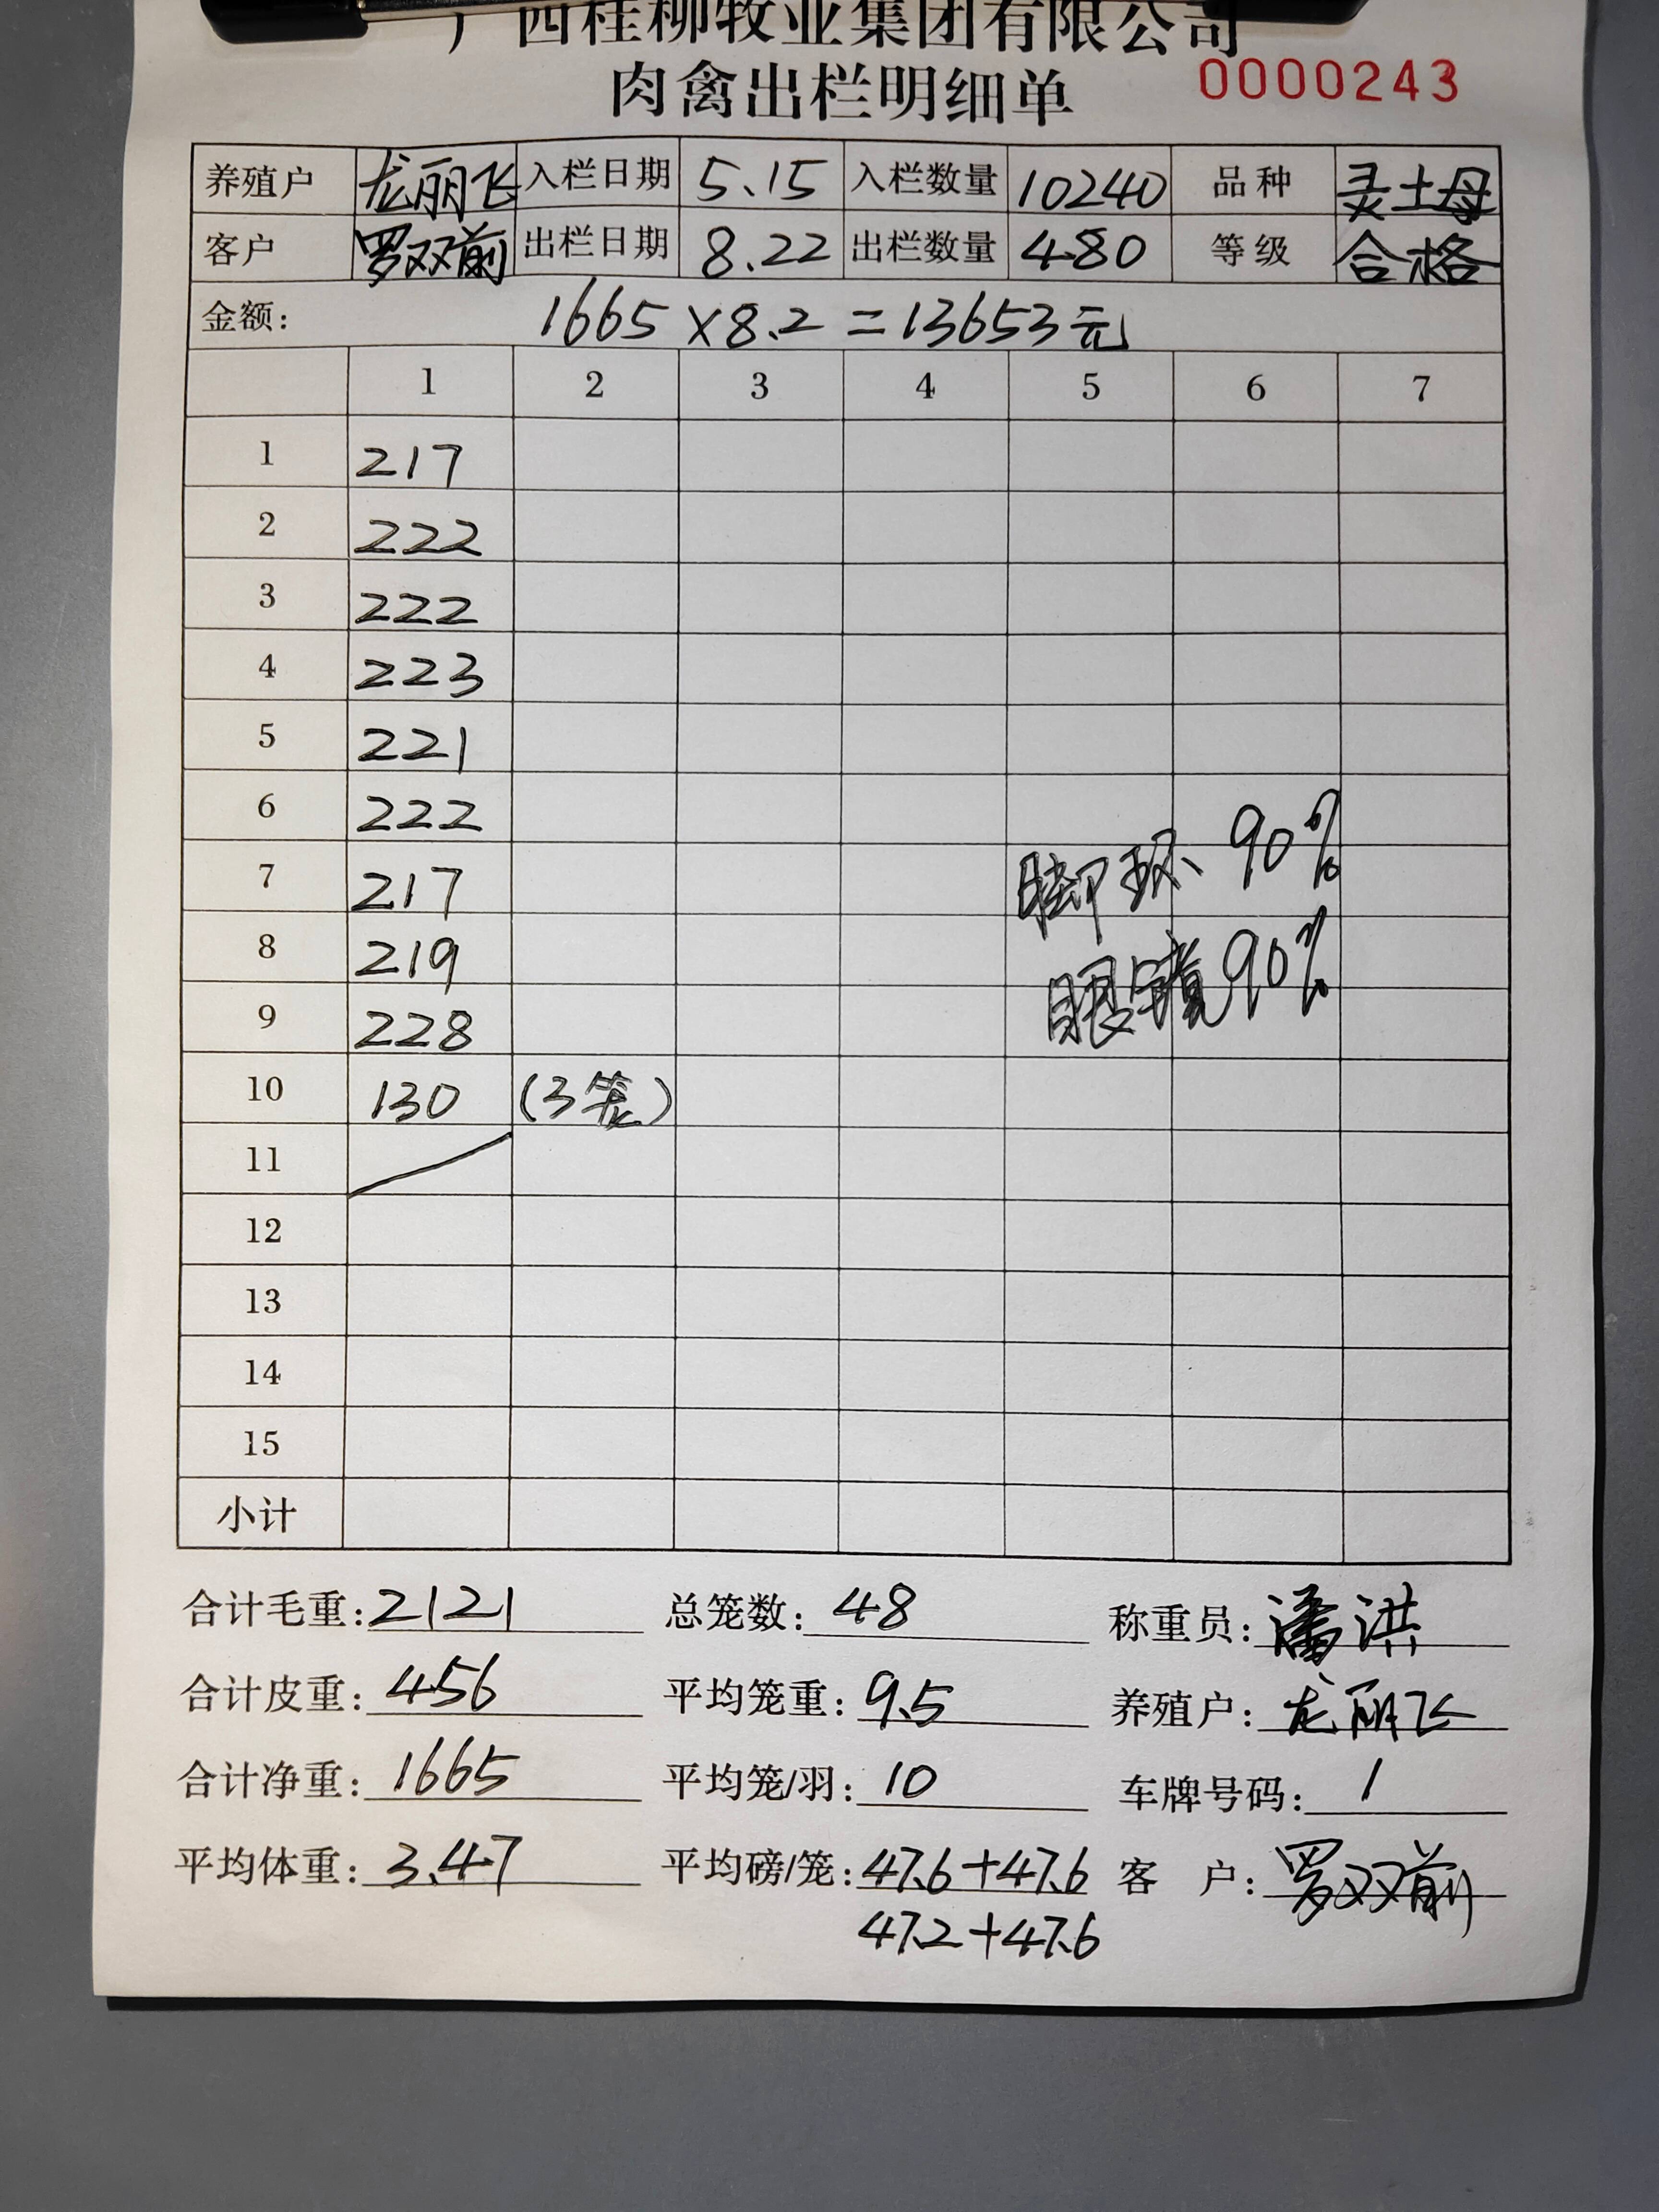 广西桂柳牧业集团有限公司
肉禽出栏明细单 0000243
养殖户 龙丽飞 入栏日期 5.15 入栏数量 10240 品种 灵土母
客户 罗双前 出栏日期 8.22 出栏数量 480 等级 合格
金额: 1665×8.2=13653元
1 2 3 4 5 6 7
1 217
2 222
3 222
4 223
5 221
6 222
7 217
脚环 90%
8 219
眼镜90%
9 228
10 130 (3笼)
11
12
13
14
15
小计
合计毛重:2121 总笼数:48 称重员:潘洪
合计皮重:456 平均笼重:9.5 养殖户:龙丽飞
合计净重:1665 平均笼/羽:10 车牌号码:1
平均体重:3.47 平均磅/笼:47.6+47.6 客 户:罗双前
47.2+47.6